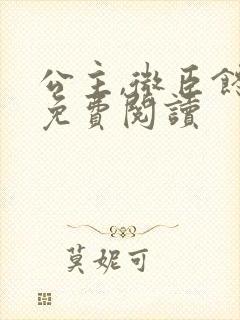 公主,微臣
免費閱讀
莫妮可